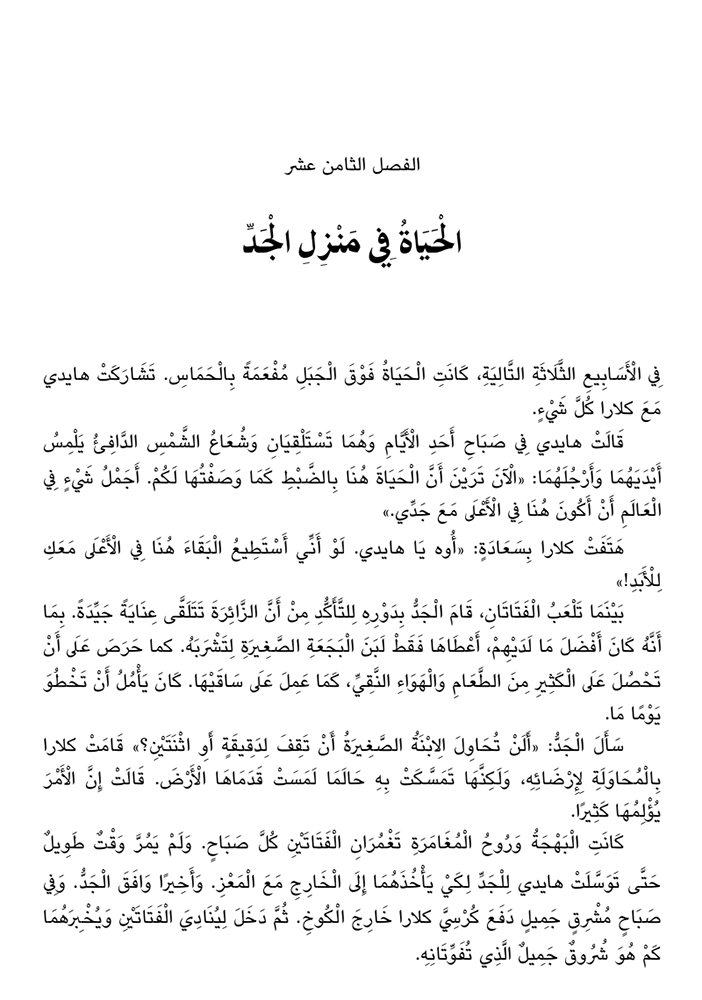 الفصل الثامن عشر
الْحَيَاةُ فِي مَنْزِلِ الْجَدِّ
فِي الْأَسَابِيعِ الثَّلَاثَةِ التَّالِيَةِ، كَانَتِ الْحَيَاةُ فَوْقَ الْجَبَلِ مُفْعَمَةً بِالْحَمَاسِ. تَشَارَكَتْ هايدي
مَعَ كلارا كُلَّ شَيْءٍ.
قَالَتْ هايدي فِي صَبَاحِ أَحَدِ الْأَيَّامِ وَهُمَا تَسْتَلْقِيَانِ وَشُعَاعُ الشَّمْسِ الدَّافِئُ يَلْمِسُ
أَيْدَيَهُمَا وَأَرْجُلَهُمَا: «الْآنَ تَرَيْنَ أَنَّ الْحَيَاةَ هُنَا بِالضَّبْطِ كَمَا وَصَفْتُهَا لَكُمْ. أَجَمْلُ شَيْءٍ فِي
الْعَالَمِ أَنْ أَكُونَ هُنَا فِي الْأَعْلَى مَعَ جَدِّي.»
هَتَفَتْ كلارا بِسَعَادَةٍ: «أُوه يَا هايدي. لَوْ أَنِّي أَسْتَطِيعُ الْبَقَاءَ هُنَا فِي الْأَعْلَى مَعَكِ
لِلْأَبَدِ!»
بَيْنَمَا تَلْعَبُ الْفَتَاتَانِ، قَامَ الْجَدُّ بِدَوْرِهِ لِلتَّأَكُّدِ مِنْ أَنَّ الزَّائِرَةَ تَتَلَقَّى عِنَايَةً جَيِّدَةً. بِمَا
أَنَّهُ كَانَ أَفْضَلَ مَا لَدَيْهِمْ، أَعْطَاهَا فَقَطْ لَبَنَ الْبَجَعَةِ الصَّغِيرَةِ لِتَشْرَبَهُ. كما حَرَصَ عَلَى أَنْ
تَحْصُلَ عَلَى الْكَثِيرِ مِنَ الطَّعَامِ وَالْهَوَاءِ النَّقِيِّ، كَمَا عَمِلَ عَلَى سَاقَيْهَا. كَانَ يَأْمُلُ أَنْ تَخْطُوَ
يَوْمًا مَا.
سَأَلَ الْجَدُّ: «أَلَنْ تُحَاوِلَ الِابْنَةُ الصَّغِيرَةُ أَنْ تَقِفَ لِدَقِيقَةٍ أَوِ اثْنَتَيْنِ؟» قَامَتْ كلارا
بِالْمُحَاوَلَةِ لِإِرْضَائِهِ، وَلَكِنَّهَا تَمَسَّكَتْ بِهِ حَالَمَا لَمَسَتْ قَدَمَاهَا الْأَرْضَ. قَالَتْ إِنَّ الْأَمْرَ
يُؤْلِمُهَا كَثِيرًا.
كَانَتِ الْبَهْجَةُ وَرُوحُ الْمُغَامَرَةِ تَغْمُرَانِ الْفَتَاتَيْنِ كُلَّ صَبَاحٍ. وَلَمْ يَمُرَّ وَقْتٌ طَوِيلٌ
حَتَّى تَوَسَّلَتْ هايدي لِلْجَدِّ لِكَيْ يَأْخُذَهُمَا إِلَى الْخَارِجِ مَعَ الْمَعْزِ. وَأَخِيرًا وَافَقَ الْجَدُّ. وَفِي
صَبَاحٍ مُشْرِقٍ جَمِيلٍ دَفَعَ كُرْسِيَّ كلارا خَارِجَ الْكُوخِ. ثُمَّ دَخَلَ لِيُنَادِيَ الْفَتَاتَيْنِ وَيُخْبِرَهُمَا
كَمْ هُوَ شُرُوقٌ جَمِيلٌ الَّذِي تُفَوِّتَانِهِ.